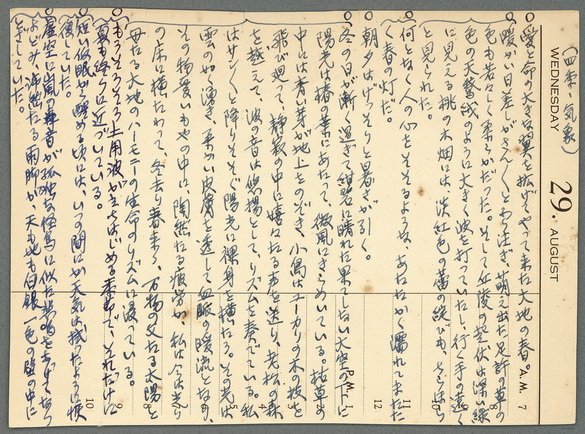 (四季・気象)
WEDNESDAY 29. AUGUST
A.M. 7
8
9
10
11
12
P.M. 1
2
3
4
5
6
7
8
9
10
○愛と命の大きな翼を拡げてやって来た大地の春。
○暖かい日差しがさんさんとわき注ぎ、萌え出た足許の草の
色も若々しく柔らかだった。そして丘陵の起伏は深い緑
色の天鵞絨のように大きく波を打っていた。行く手に遠く
に見える桃の木畑には、淡紅色の蕾の綻びも、ちらほら
と見られた。
○何となく人の心をそそるような、あたたかく濡れてまたた
く春の灯だ。
○朝夕はげっそりと暑さが引く。
○冬の日が漸く過ぎ、紺碧に晴れた果てしない大空の下に
陽光は椿の葉にあたって、微風にきらめいている。枯草の
中には青い芽が地上をのぞき、小鳥はユーカリの木の枝を
飛び廻って、静寂の中に嬉々たる声を送り、老松の森
を越えて、波の音は悠揚として、リズムを奏でている。私
はサンサンと降りそそぐ陽光に裸身を横たえる。その光は
雲の如く湧き、柔かい皮膚を透して血脈の暖流となり、
その物憂いもやの中に、陶然たる疲労が、私は今は光り
の床に横たわって、冬去り春来り、万物の父なる太陽と
母なる大地のハーモニーの生命のリズムに浸っている。
○もうそろそろ土用波が立ちはじめる季節で、それだけに
夏も終りに近づいている。
○短い仮眠から醒めた頃には、いつの間にか天気は拭たように恢
復していた。
○虚空に山風の舞音が孤独な怪鳥に似た夢の鳴を告げて行っ
よどみつ海がたる雨脚が天も地も白銀一色の闇の中に
とざしていた。